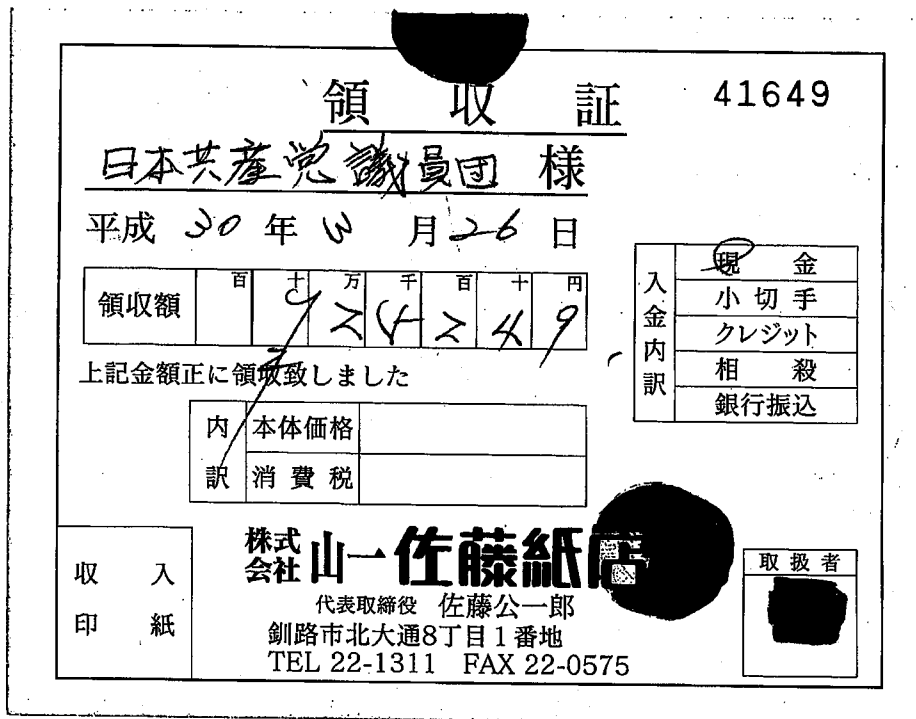 領収証
41649
日本共産党議員団 様
平成 30 年 3 月 26 日
領収額 百 十 万 千 百 十 円
2 4 2 4 9
上記金額正に領収致しました
内訳 本体価格
消費税
入金内訳
現金
小切手
クレジット
相殺
銀行振込
収入
印紙
株式会社 山一佐藤紙店
代表取締役 佐藤公一郎
釧路市北大通8丁目1番地
TEL 22-1311 FAX 22-0575
取扱者